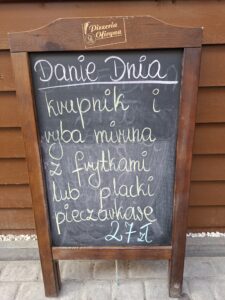 Pizzeria
Oficyna
Danie Dnia
krupnik i
ryba miruna
z frytkami
lub placki
pieczarkasę
27 zł